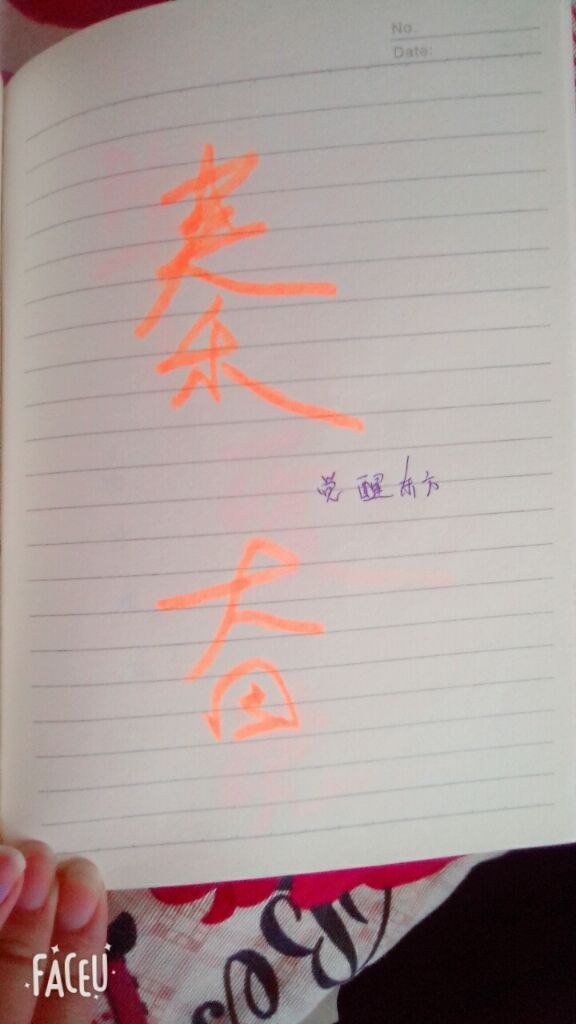 No.
Date:
秦
觉醒东方
奋
FACEU